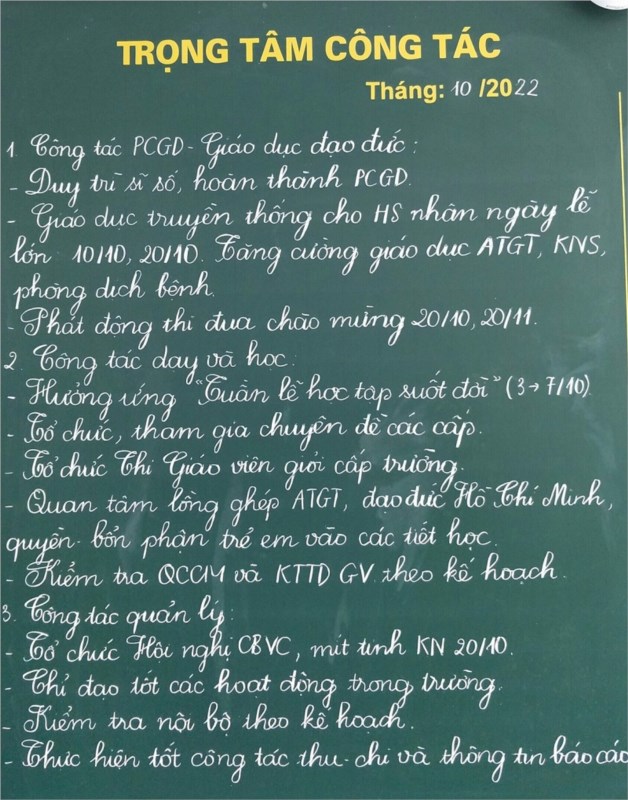 TRỌNG TÂM CÔNG TÁC
Tháng: 10 /2022
1. Công tác PCGD - Giáo dục đạo đức :
- Duy trì sĩ số, hoàn thành PCGD.
- Giáo dục truyền thống cho HS nhân ngày lễ
lớn 10/10, 20/10. Tăng cường giáo dục ATGT, KNS,
phòng dịch bệnh.
- Phát động thi đua chào mừng 20/10, 20/11.
2. Công tác dạy và học.
- Hưởng ứng "Tuần lễ học tập suốt đời" (3→7/10)
- Tổ chức, tham gia chuyên đề các cấp.
- Tổ chức Thi Giáo viên giỏi cấp trường.
- Quan tâm lồng ghép ATGT, đạo đức Hồ Chí Minh,
quyền - bổn phận trẻ em vào các tiết học.
- Kiểm tra QCCM và KTTD GV theo kế hoạch.
3. Công tác quản lý:
- Tổ chức Hội nghị CBVC, mít tinh KN 20/10.
- Chỉ đạo tốt các hoạt động trong trường.
- Kiểm tra nội bộ theo kế hoạch.
- Thực hiện tốt công tác thu - chi và thông tin báo cáo